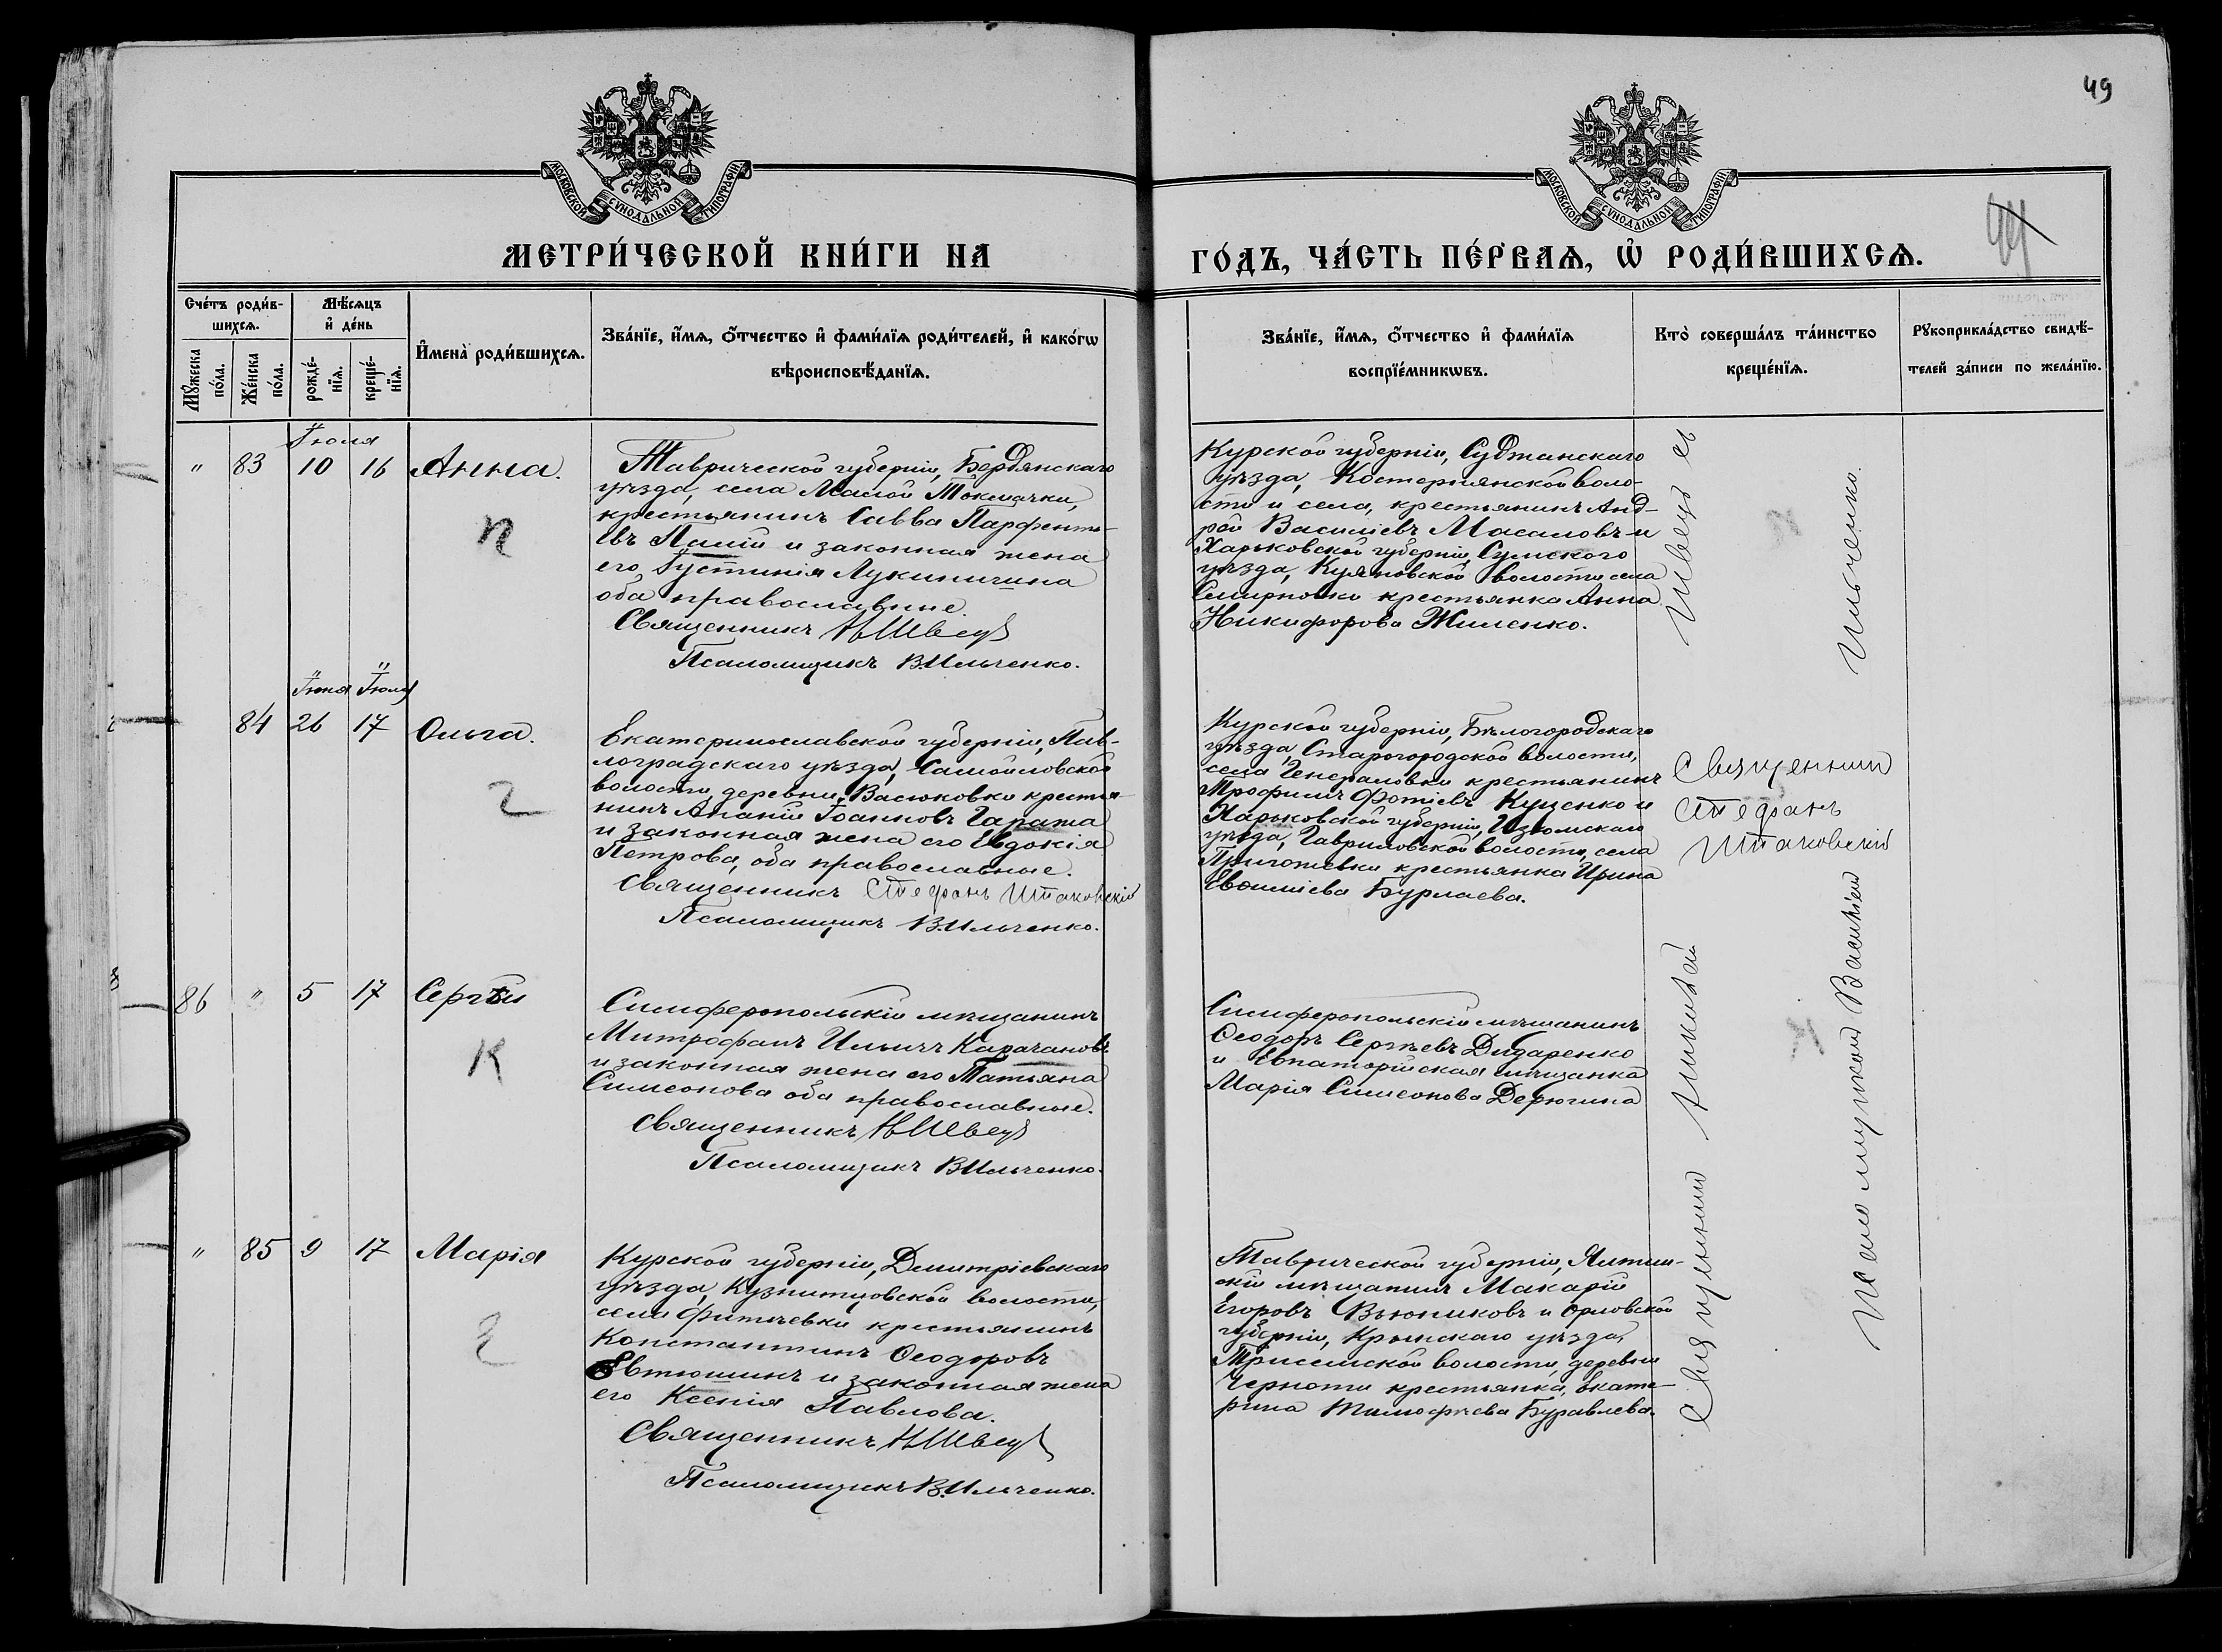 49
МОСКОВСКОЙ СУНОДАЛЬНОЙ ТИПОГРАФІИ
МОСКОВСКОЙ СУНОДАЛЬНОЙ ТИПОГРАФІИ
МЕТРИ́ЧЕСКОЙ КНИ́ГИ НА
ГО́ДЪ, ЧА́СТЬ ПЕ́РВАѦ, Ѡ҆ РОДИ́ВШИХСѦ.
Сче́тъ роди́в-
шихсѧ.
Мꙋ́жеска по́ла.
Же́нска по́ла.
Мѣ́сѧцъ
и҆ де́нь
рожде́-
нїѧ.
креще́-
нїѧ.
И҆мена̀ роди́вшихсѧ.
Зва́нїе, и҆́мѧ, ѻ҆́тчество и҆ фами́лїѧ роди́телей, и҆ како́гѡ
вѣроисповѣ́данїѧ.
Зва́нїе, и҆́мѧ, ѻ҆́тчество и҆ фами́лїѧ
воспрїе́мникѡвъ.
Кто̀ соверша́лъ та́инство
креще́нїѧ.
Рꙋкоприкла́дство свидѣ́-
телей за́писи по жела́нїю.
Іюля
" 83 10 16 Анна.
П
Таврической губерніи, Бердянскаго
уѣзда, села Малой Токмачки,
крестьянинъ Савва Парфентi-
евъ Палій и законная жена
его Іустинія Лукинична
оба православные.
Священникъ Н Швецъ
Псаломщикъ В.Ильченко.
Курской губерніи, Суджанскаго
уѣзда, Костерлянской воло-
сти и села, крестьянинъ Анд-
рей Василіевъ Масаловъ и
Харьковской губерніи, Сумскаго
уѣзда, Куяновской волости, села
крестьянка Анна
Никифорова Жиленко.
Іюня Іюля
84 26 17 Ольга.
Г
Екатеринославской губерніи, Пав-
лоградскаго уѣзда, Самойловской
волости, деревни Васюковки крестья-
нинъ Ананій Іоанновъ Гарата
и законная жена его Евдокія
Петрова, оба православные.
Священникъ Стефанъ Штаковскій
Псаломщикъ В.Ильченко.
Курской губерніи, Бѣлогородскаго
уѣзда, Старогородской волости,
села Генераловки крестьянинъ
Трофимъ Фотіевъ Куценко и
Харьковской губерніи, Изюмскаго
уѣзда, Гавриловской волости, села
крестьянка Ирина
Бурлаева.
Священник
Стефанъ
Штаковский
86 " 5 17 Сергѣй
К
Симферопольскій мѣщанинъ
Митрофанъ Ильичъ Карачановъ
и законная жена его Татьяна
Симеонова оба православные.
Священникъ Н Швецъ
Псаломщикъ В Ильченко.
Симферопольскій мѣщанинъ
Ѳеодоръ Сергѣевъ Дидаренко
и Евпаторійская мѣщанка
Марія Симеонова Дерюгина
" 85 9 17 Марія
Е
Курской губерніи, Дмитріевскаго
уѣзда, Кузнитцовской волости,
села крестьянинъ
Константинъ Ѳеодоровъ
Евтюшинъ и законная жена
его Ксенія Павлова.
Священникъ Н Швецъ
Псаломщикъ В.Ильченко.
Таврической губерніи, Ялтин-
скій мѣщанинъ Макарій
Егоровъ Вьюниковъ и Орловской
губерніи, уѣзда,
волости, деревни
крестьянка, Екате-
рина Тимофѣева Буравлева.
Священник Николай Швецъ
Псаломщикъ Василий Ильченко.